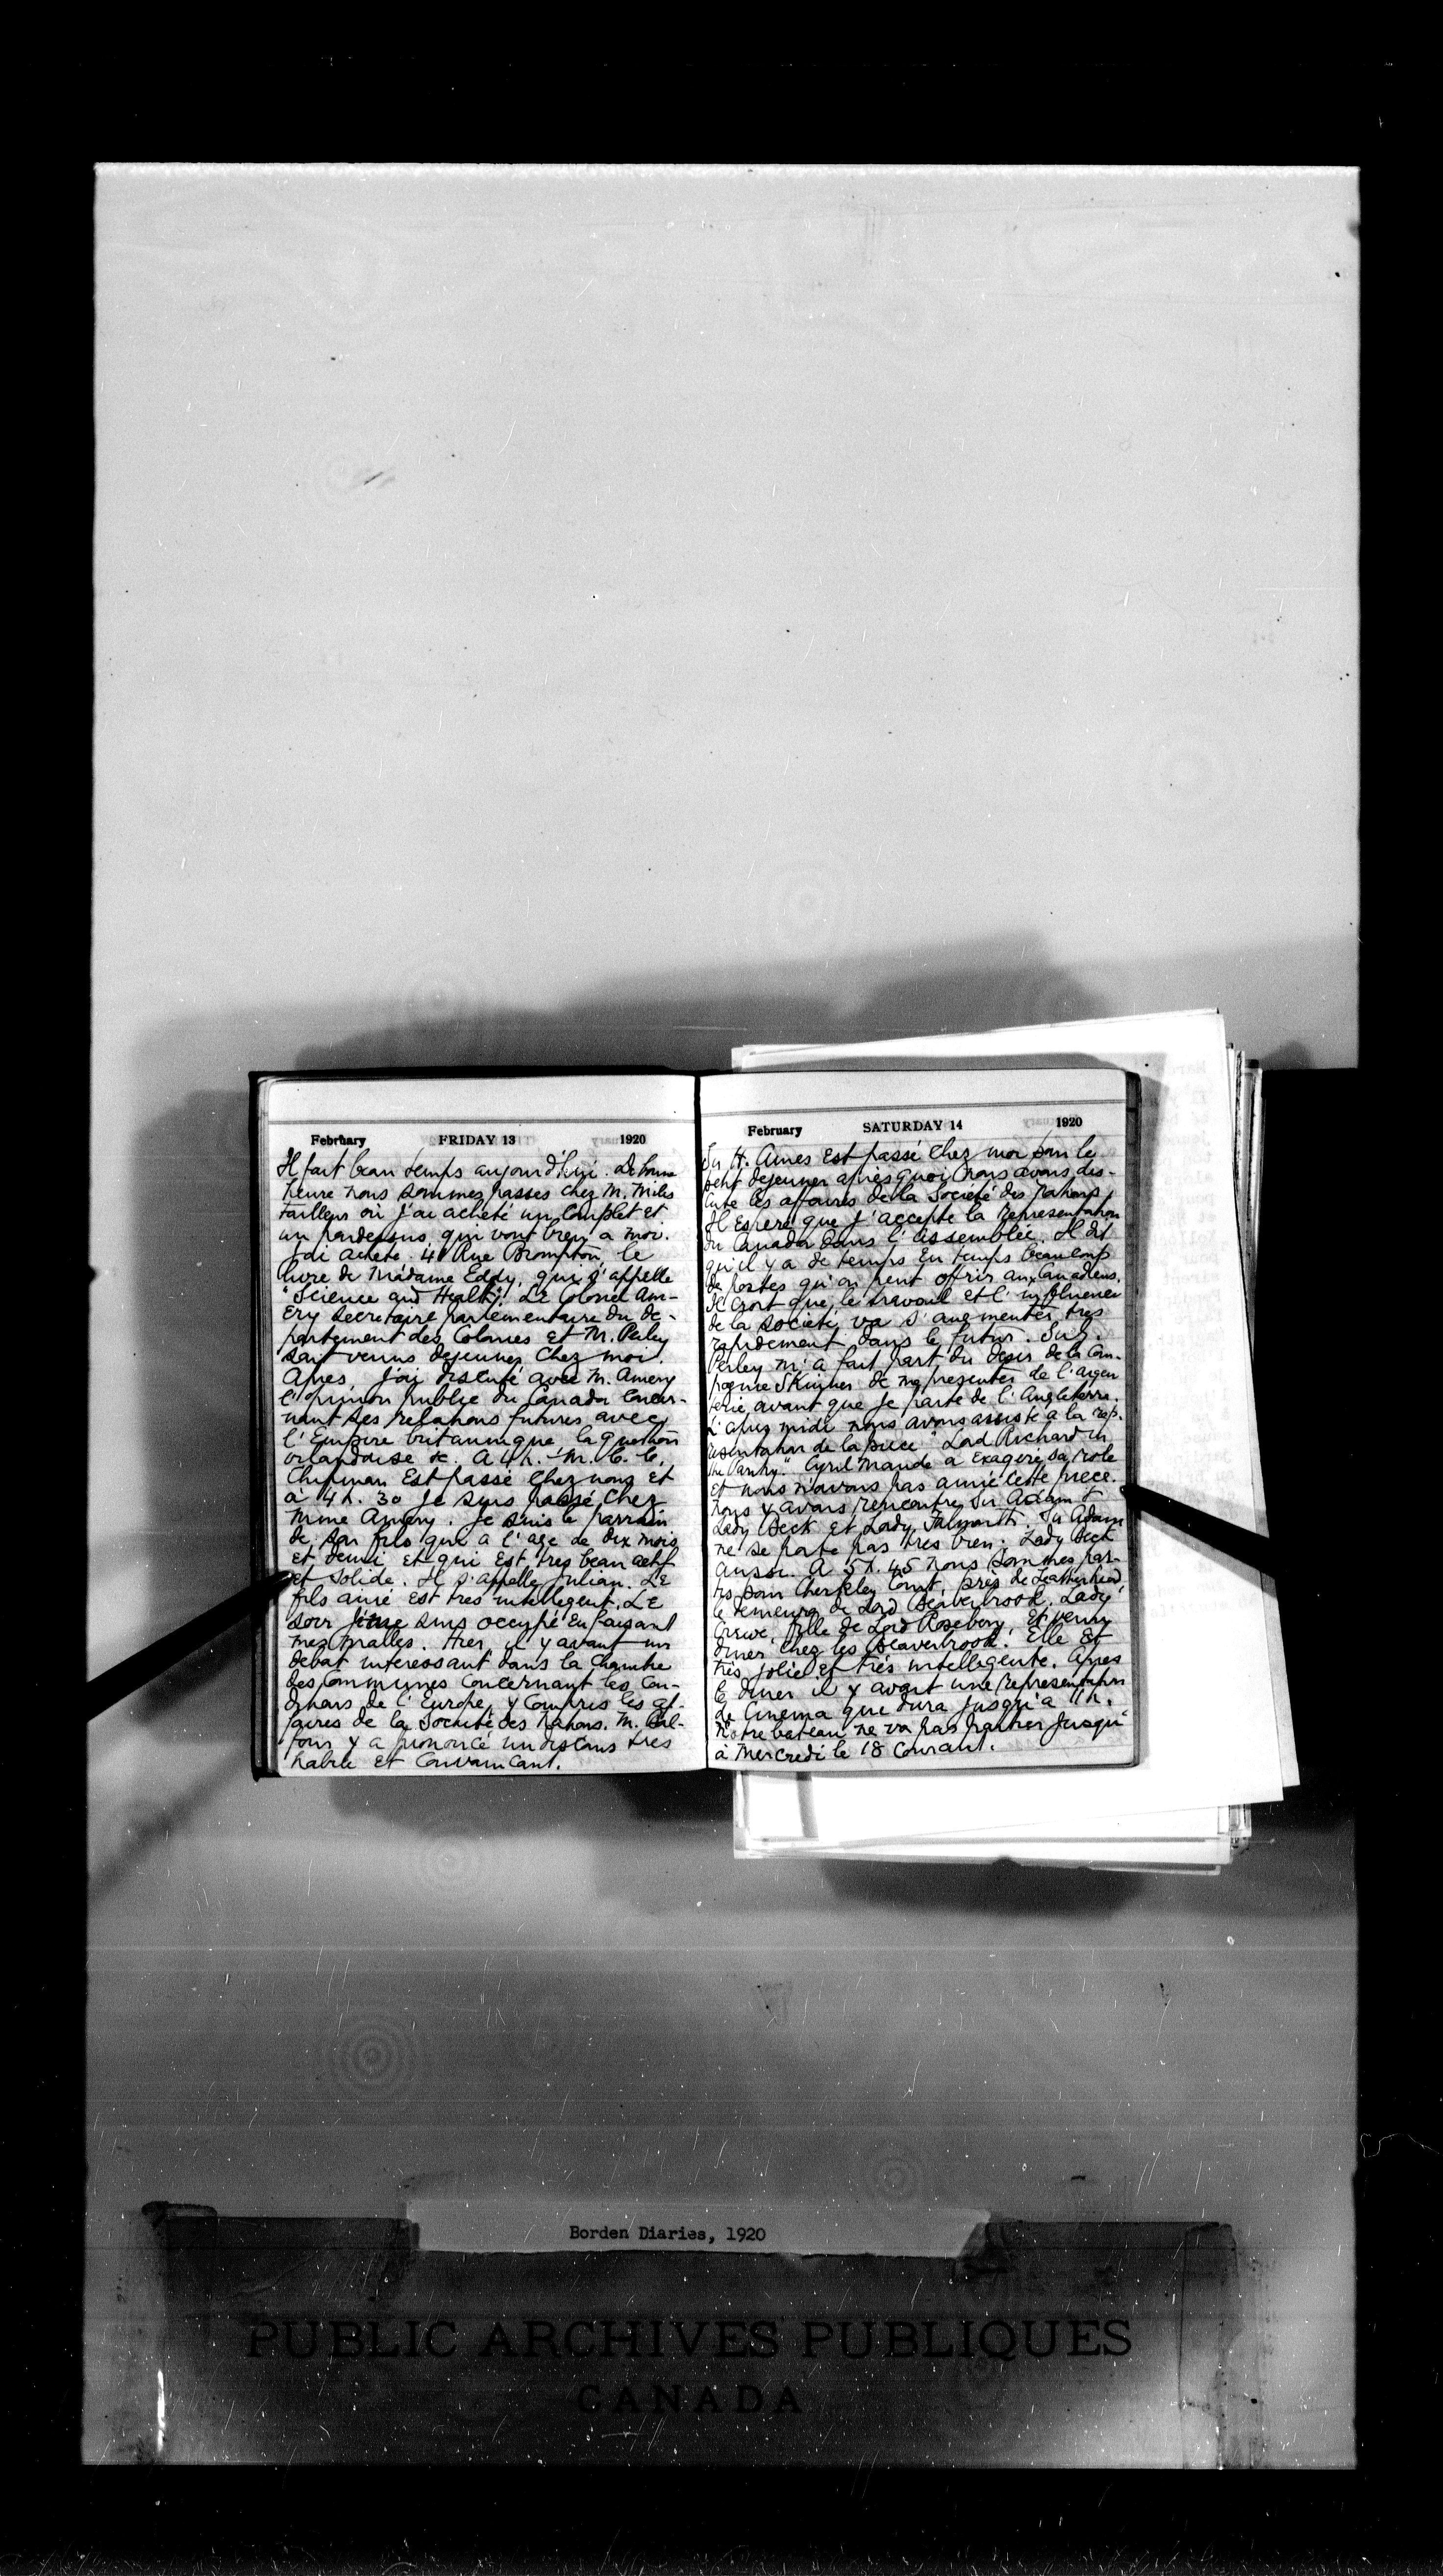 February FRIDAY 13 1920
Il fait beau temps aujourd'hui. de bonne
heure nous sommes passes chez M. Miles
tailleur où j'ai acheté un complet et
un pardessus, qui vont bien a moi.
J'ai acheté 4 Rue Brompton, le
livre de Madame Eddy, qui s'appelle
"Science and Health". Le Colonel Am-
ery secretaire parlementaire du de-
partement des Colonies et M. Perley
sont venus dejeuner chez moi.
Apres, j'ai discuté avec M. Amery
l'opinion publie du Canada concer-
nant ses relations futures avec
l'Empire britannique la question
irlandaise &c. A 4 h. M. C. C.
Chipman est passé chez nous et
à 4 h. 30 je suis passé chez
Mme Amery. Je suis le parrain
de son fils que a l'age de dix mois
et demi et qui est tres beau actif
et solide. Il s'appelle Julian. Le
fils ainé est tres intellegent. Le
soir je me suis occupé en faisant
mes malles. Hier il y avait un
debat interessant dans la Chambre
des Communes concernant les con-
ditions de l'Europe, y compris les af-
faires de la Société des Nations. M. Bal-
four y a prononcé un discours tres
habile et convaincant.
February SATURDAY 14 1920
Sir H. Ames est passé chez moi pour le
petit dejeuner après quoi nous avons dis-
cuté les affaires de la Société des Nations.
Il espere que j'accepte la representation
du Canada dans l'assemblée. Il dit
qu'il y a de temps en temps beaucoup
de postes qu'on peut offrir aux Canadiens.
Il croit que le travail et l'influence
de la société va s'augmenter tres
rapidement dans le futur. Sir G.
Perley m'a fait part du desir de la Com-
pagnie Skinner de me presenter de l'argen
terie avant que je parte de l'Angleterre.
L'apres midi nous avons assisté a la rep-
resentation de la piece "Lord Richard in
the Pantry." Cyril Maude a exageré sa role
et nous n'avons pas aimé cette piece.
Nous y avons rencontré Sir Adam &
Lady Beck et Lady Falmouth. Sir Adam
ne se porte pas tres bien; Lady Beck
aussi. A 5 h. 45 nous sommes par-
tis pour Cherkley Court, près de Leatherhead,
le demeure de Lord Beaverbrook. Lady
Crewe, fille de Lord Rosebery, est venu
diner chez les Beaverbrook. Elle est
très jolie et très intellegente. Apres
le diner il y avait une representation
de Cinema que dura jusqu'a 11 h.
Notre bateau ne va pas partir jusqu'
à Mercredi le 18 courant.
Borden Diaries, 1920
PUBLIC ARCHIVES PUBLIQUES
CANADA